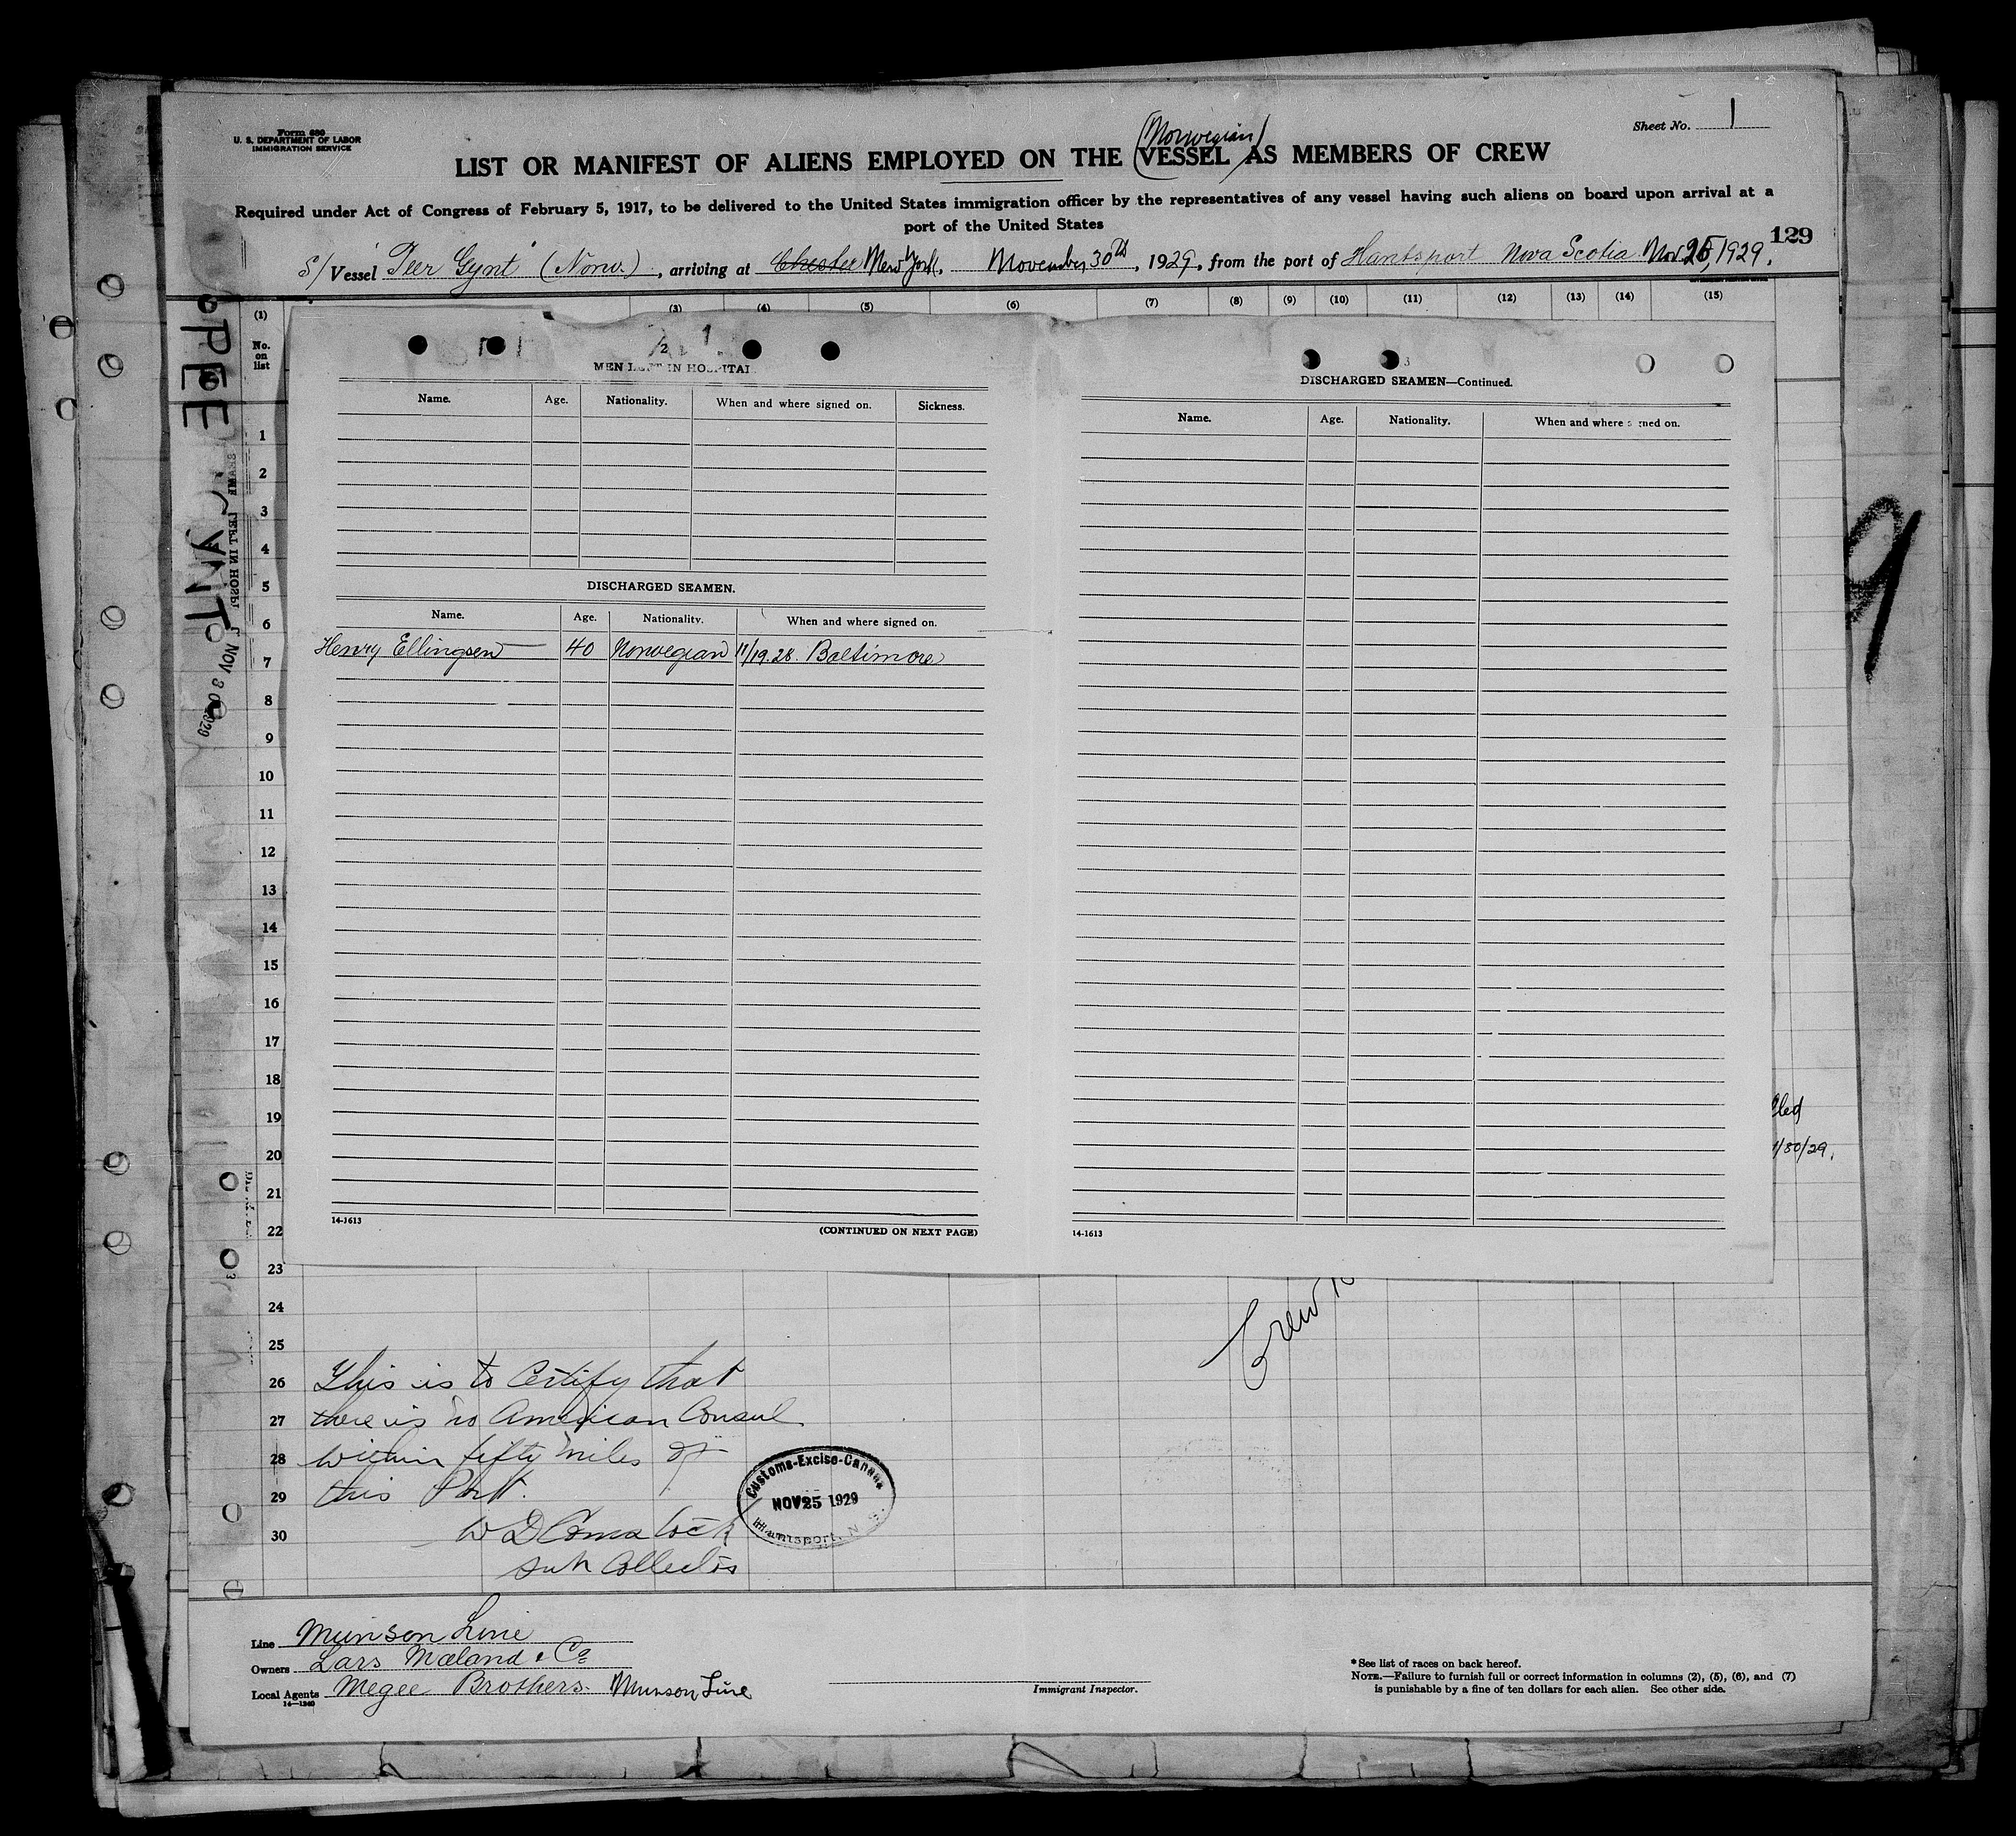 Form 680
U. S. DEPARTMENT OF LABOR
IMMIGRATION SERVICE
Sheet No. 1
(Norwegian)
LIST OR MANIFEST OF ALIENS EMPLOYED ON THE VESSEL AS MEMBERS OF CREW
Required under Act of Congress of February 5, 1917, to be delivered to the United States immigration officer by the representatives of any vessel having such aliens on board upon arrival at a
port of the United States
129
S/ Vessel "Peer Gynt" (Norw.), arriving at Chester New York, November 30th, 1929, from the port of Hantsport Nova Scotia Nov 25, 1929.
(1) (3) (4) (5) (6) (7) (8) (9) (10) (11) (12) (13) (14) (15)
No.
on
list
2
MEN LEFT IN HOSPITAL
Name. Age. Nationality. When and where signed on. Sickness.
DISCHARGED SEAMEN.
Name. Age. Nationality. When and where signed on.
Henry Ellingsen 40 Norwegian 11/19.28. Baltimore
14-1613
(CONTINUED ON NEXT PAGE)
3
DISCHARGED SEAMEN—Continued.
Name. Age. Nationality. When and where signed on.
14-1613
1
2
3
4
5
6
7
8
9
10
11
12
13
14
15
16
17
18
19
20
21
22
23
24
25
26
27
28
29
30
NOV 30 1929
/30/29.
Crew
This is to Certify that
there is no American Consul
within fifty miles of
this Port.
Sub Collector
Customs-Excise-Canada
NOV 25 1929
Hantsport, N. S.
Line Munson Line
Owners Lars Mæland & Co
Local Agents Megee Brothers. Munson Line
14—1240
Immigrant Inspector.
* See list of races on back hereof.
NOTE.—Failure to furnish full or correct information in columns (2), (5), (6), and (7)
is punishable by a fine of ten dollars for each alien. See other side.